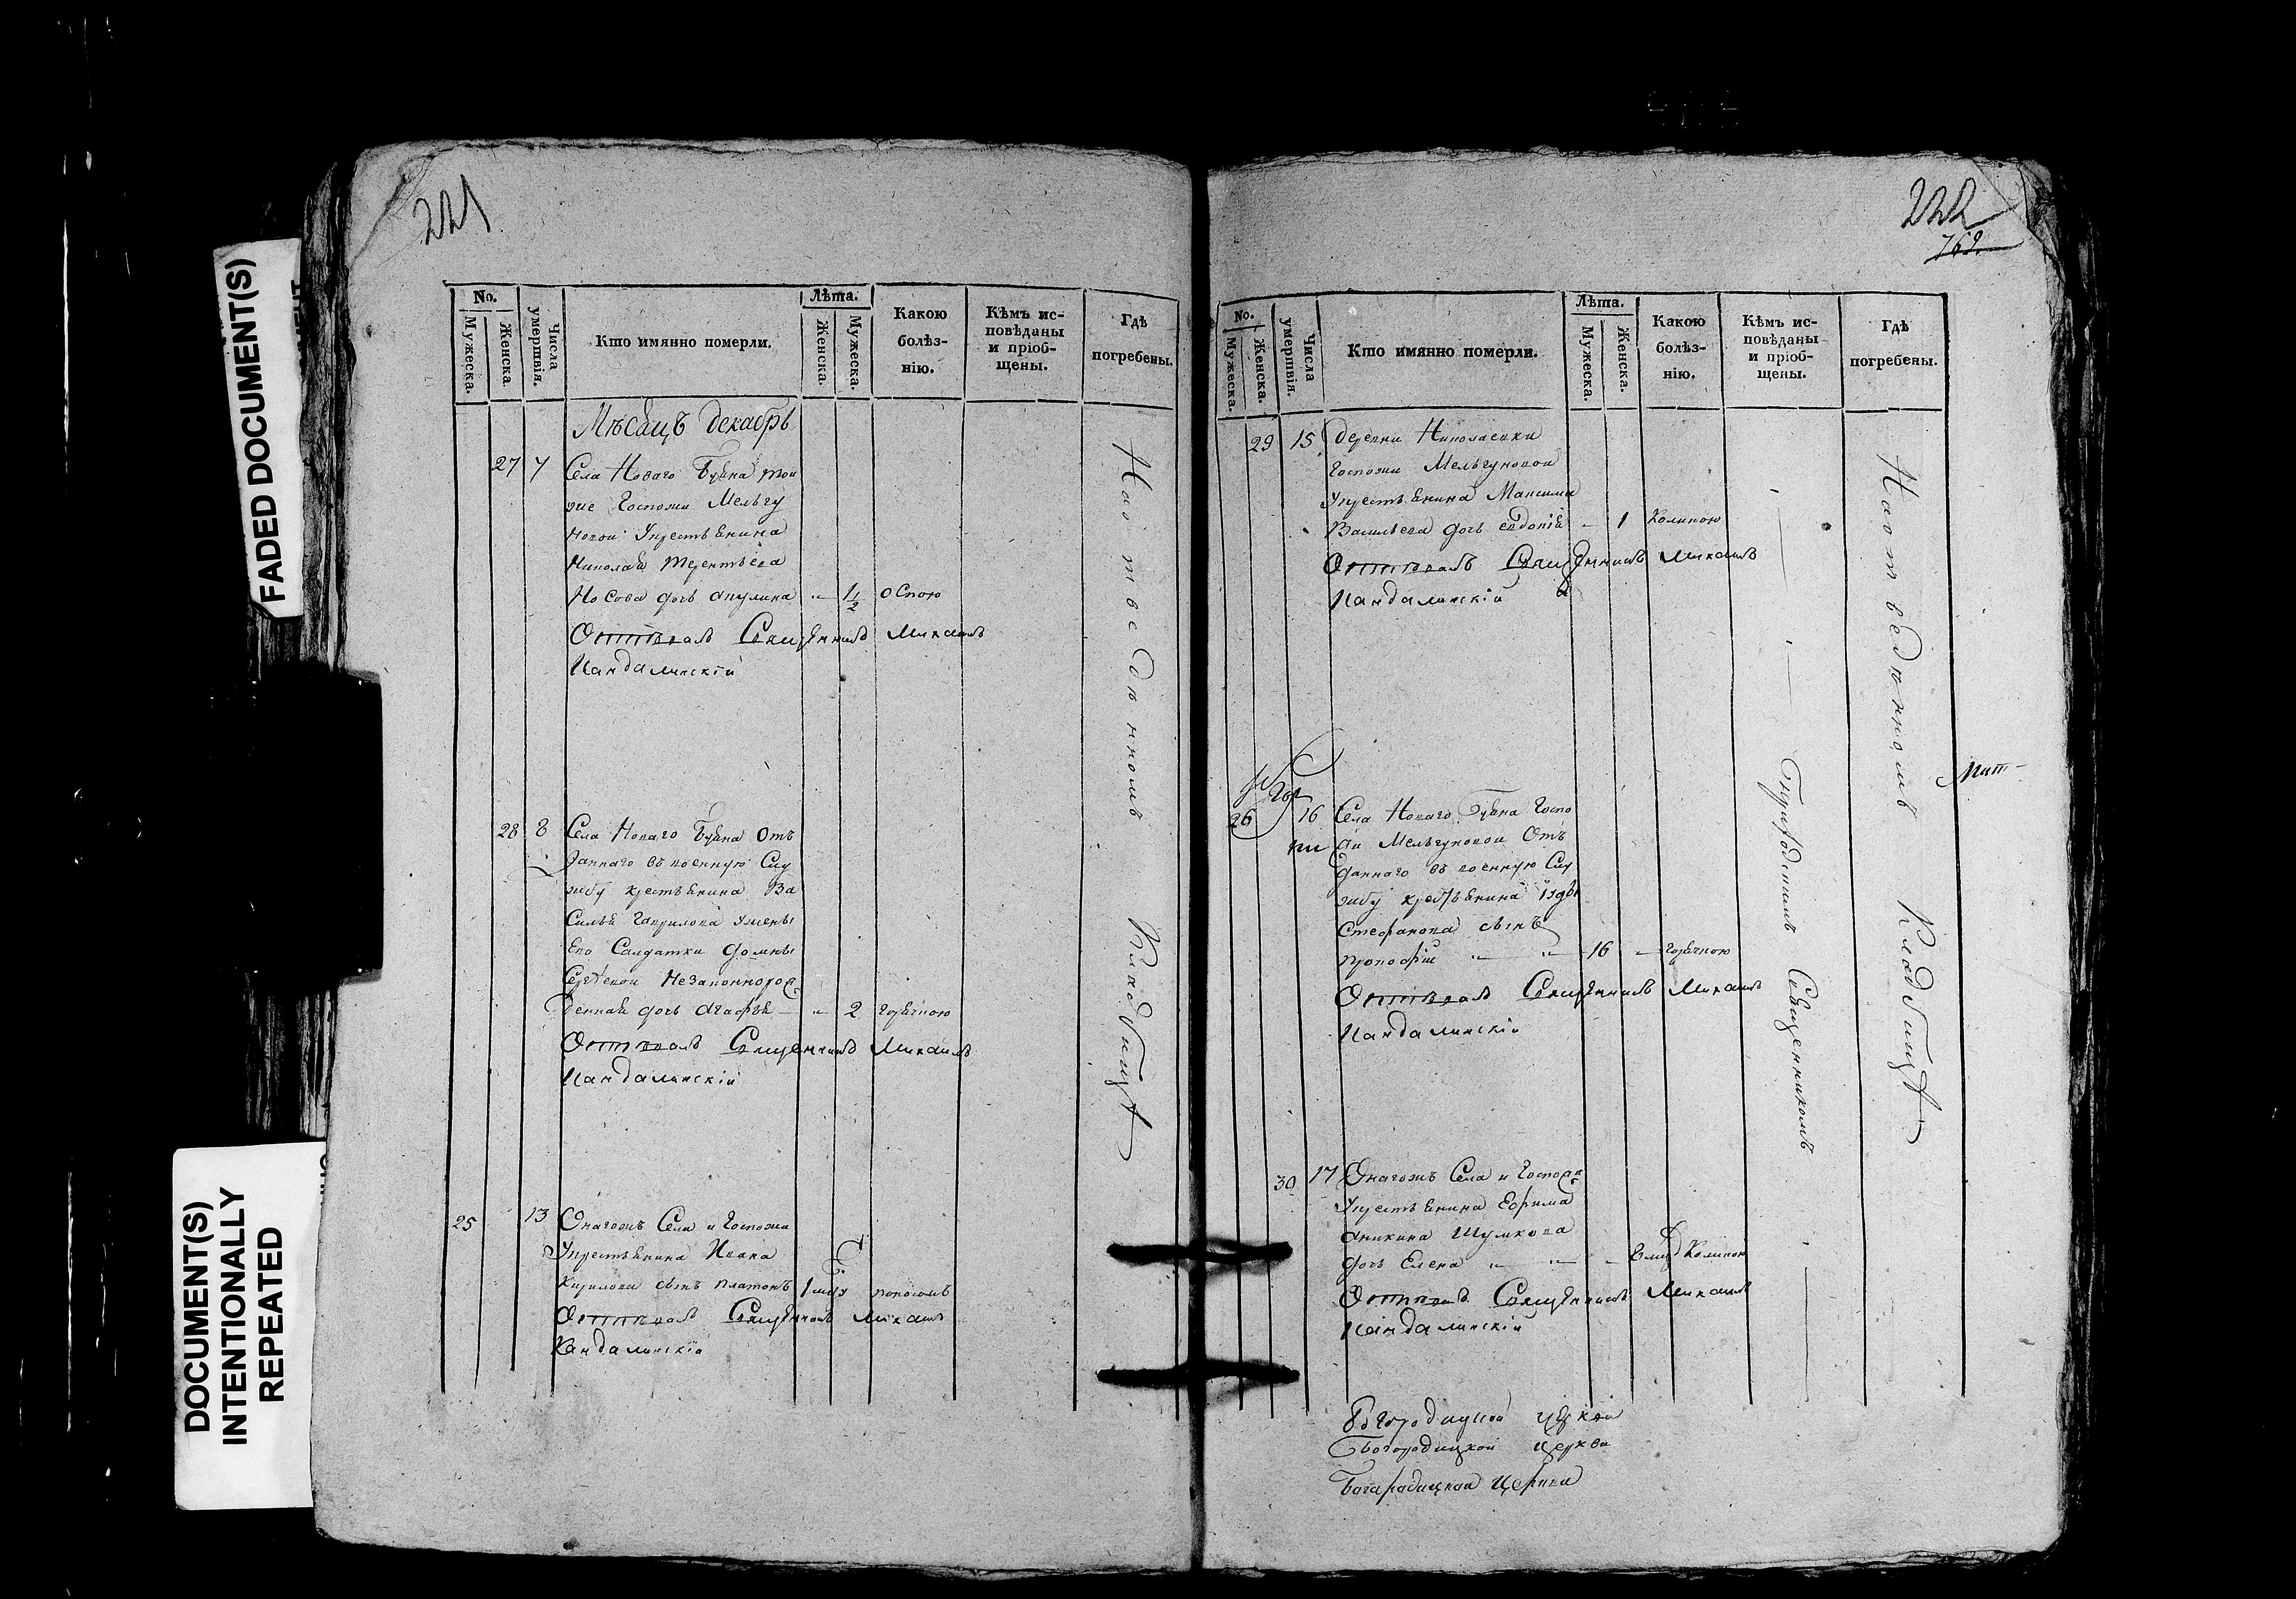 FADED DOCUMENT(S)
DOCUMENT(S)
INTENTIONALLY
REPEATED
221
No.
Мужеска.
Женска.
Числа
умертвія.
Кто имянно померли.
Лѣта.
Женска.
Мужеска.
Какою
болѣз-
нію.
Кѣмъ ис-
повѣданы
и пріоб-
щены.
Гдѣ
погребены.
Мѣсяцъ декабрь
27 7 Села Новаго Буяна тои
же Госпожи Мельгу
новои крестьянина
Николая терентьева
Носова дочь акулина " 1 1/2 оспою
Отпѣвалъ Священникъ Михаилъ
Кандалинскіи
28 8 Села Новаго Буяна отъ
даннаго въ военную Слу
жбу крестьянина Ва
силья гаврилова у жены
Ево Салдатки домны
Сергѣевои незаконнорож
денная дочь агафья " 2 горячкою
Отпѣвалъ Священникъ Михаилъ
Кандалинскіи
25 13 Онагожъ Села и Госпожи
крестьянина Ивана
кирилова сынъ платонъ 1 мцу поносомъ
Отпѣвалъ Священникъ Михаилъ
Кандалинскіи
На отведѣнномъ Кладбищѣ
222
769
No.
Мужеска.
Женска.
Числа
умертвія.
Кто имянно померли.
Лѣта.
Мужеска.
Женска.
Какою
болѣз-
нію.
Кѣмъ ис-
повѣданы
и пріоб-
щены.
Гдѣ
погребены.
29 15 деревни Николаевки
Госпожи Мельгуновои
крестьянина Максима
Васильева дочь евдокія - 1 Коликою
Отпѣвалъ Священникъ Михаилъ
Кандалинскіи
26 16 Села Новаго Буяна Госпо
жи Мельгуновои Отъ
даннаго въ военную Слу
жбу крестьянина
Стефанова сынъ
прокофіи " " 16 - горячкою
Отпѣвалъ Священникъ Михаилъ
Кандалинскіи
30 17 Онагожъ Села и Госпожи
крестьянина Ефима
аникина Шумкова
дочь Елена " " 8 мцъ Коликою
Отпѣвалъ Священникъ Михаилъ
Кандалинскіи
Священникомъ
На отведѣнномъ Кладбищѣ
Богородицкой церкви
Богородицкои Церкви
Богародицкои Церкви